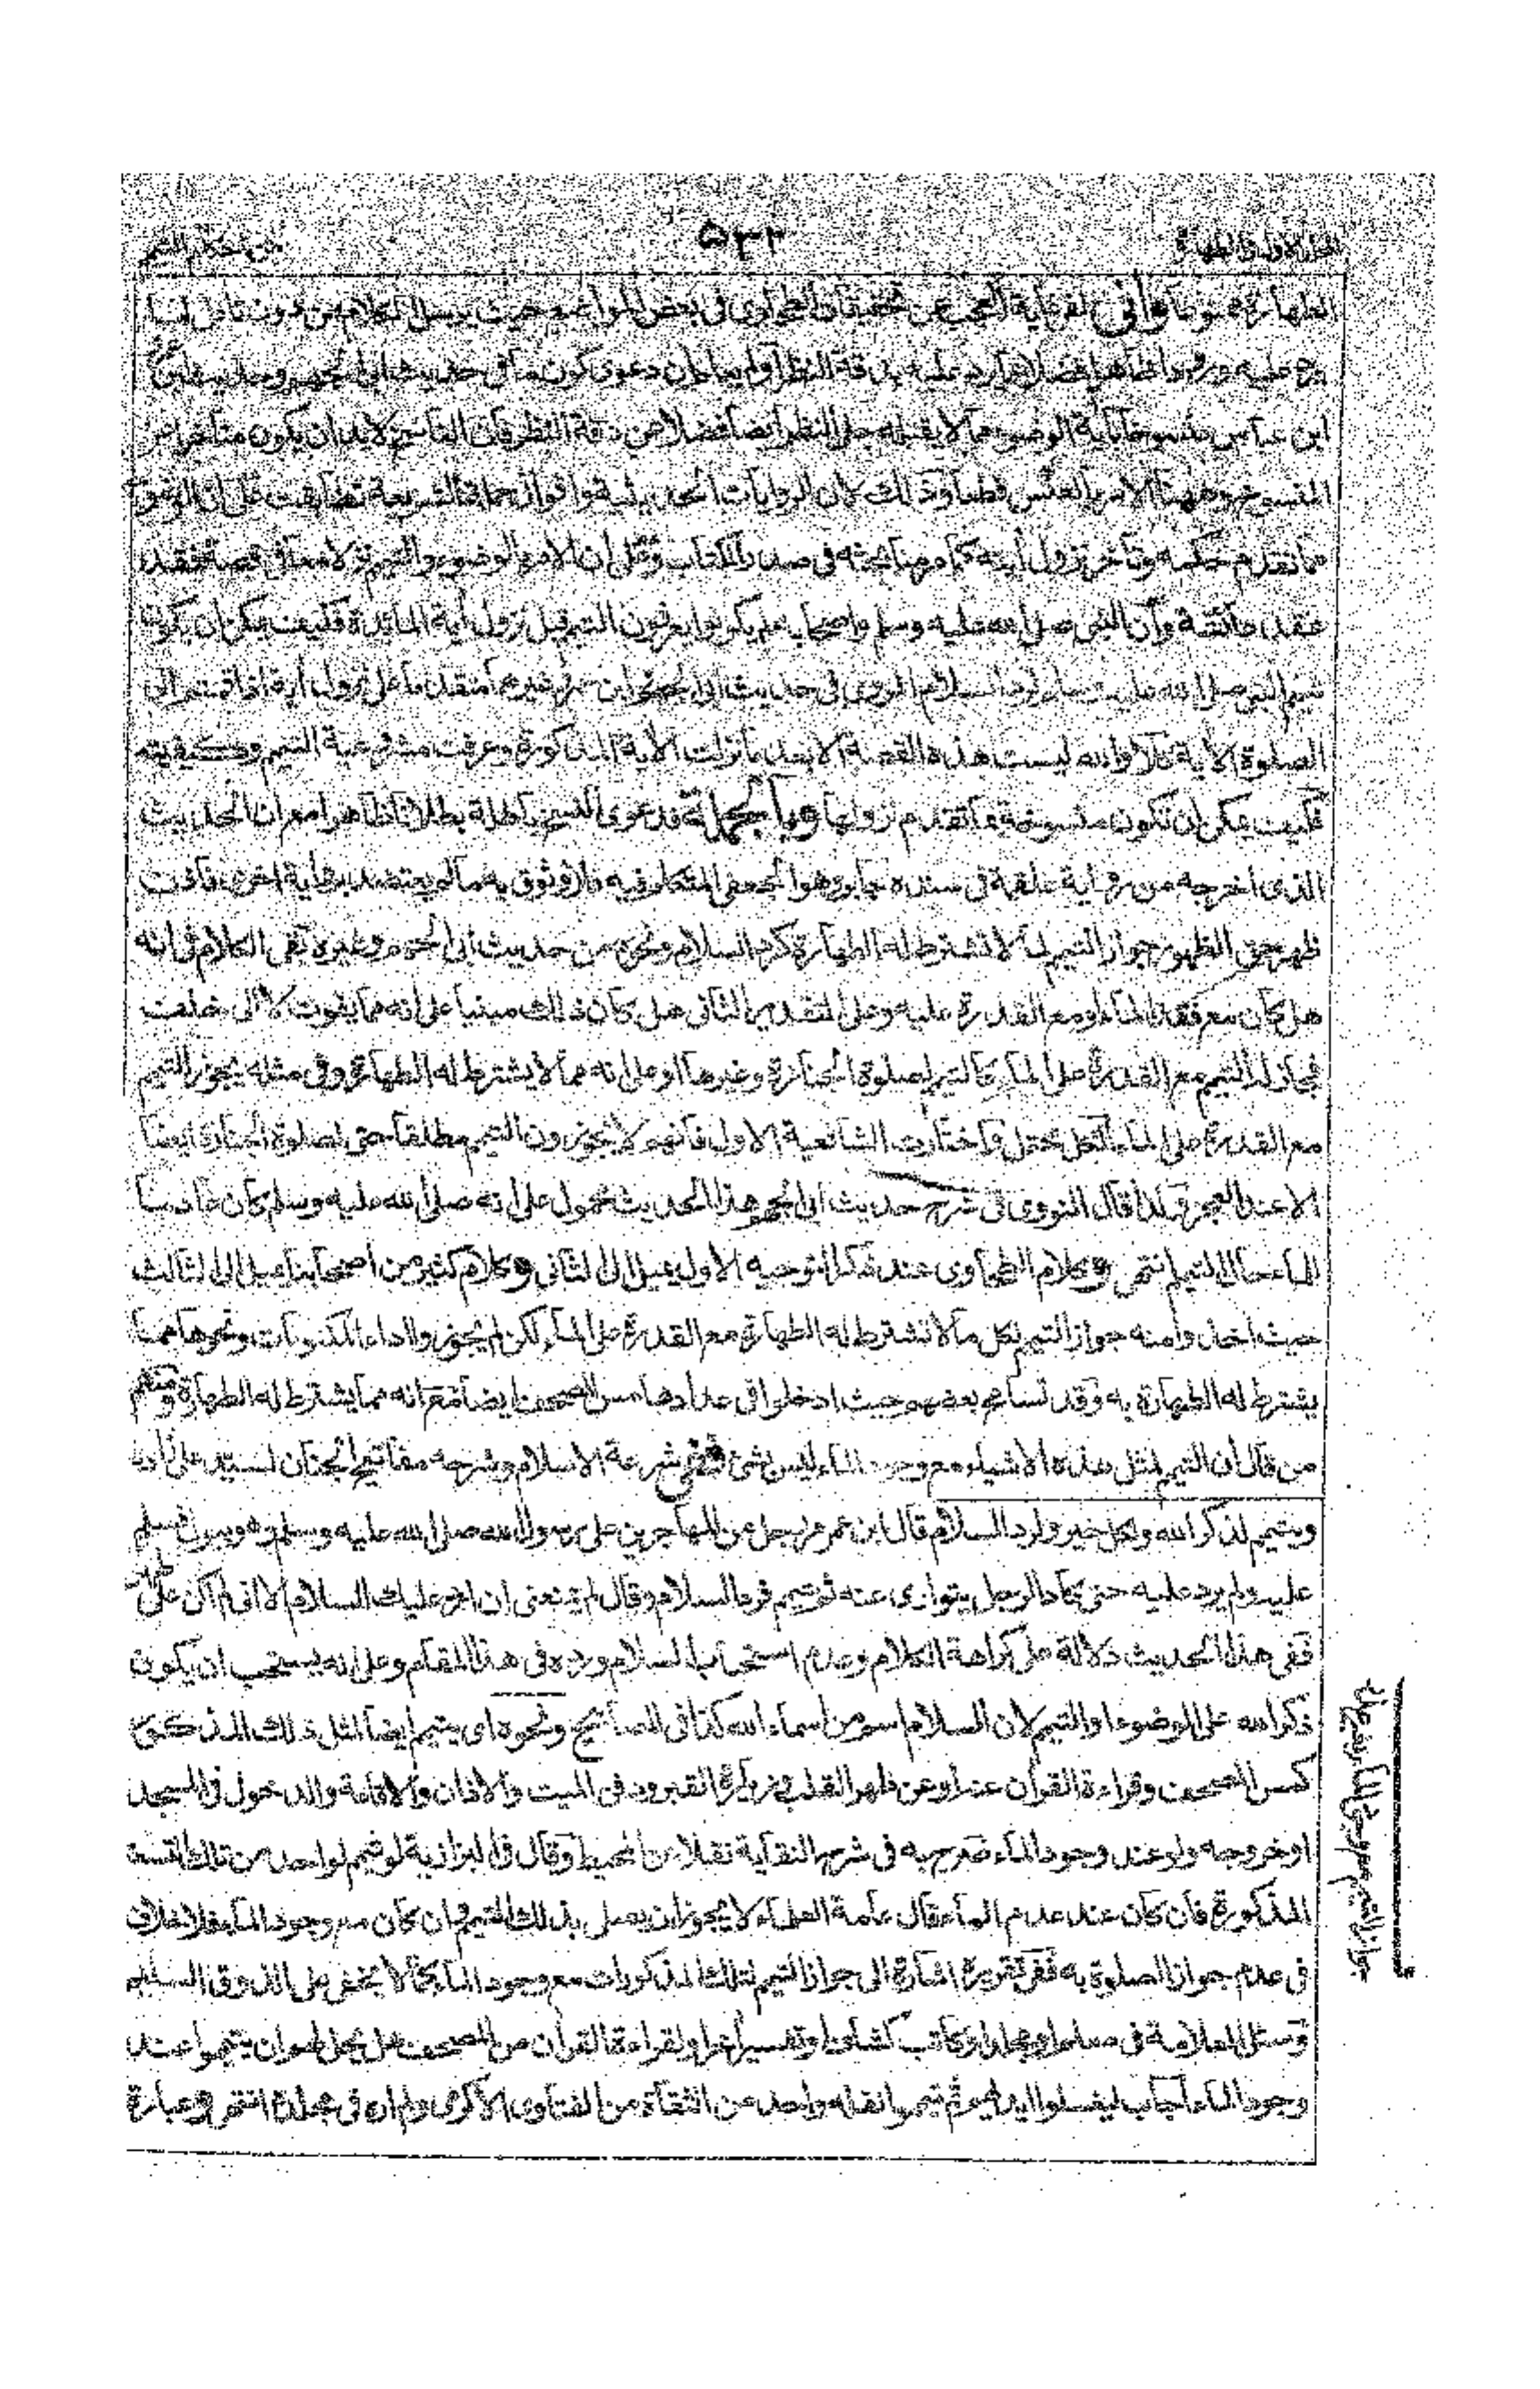 ۵۳۲
الطهارة منسوخا وانى لفى غاية العجب من تحقيقات الطحاوى فى بعض المواضع حيث يرسل الكلام من دون تأمل
يرد عليه دعوى كون ما فى حديث ابى الجهم وحديث
ابن عباس منسوخا بأية الوضوء مما لا يقبله جلى النظر ايضا فضلا عن دقة النظر فان الناسخ لا بد ان يكون متأخرا عن
المنسوخ وههنا الامر بالعكس قطعا وذلك لان الروايات الحديثية على ان الوضوء
مما تقدم حكمه وتأخر نزول أيته كما مر منا بحثه فى صدر الكتاب وعلى ان الامر بالوضوء والتيمم نزلا معا فى قصة فقد
عقد عائشة وأن النبى صلى الله عليه وسلم واصحابه لم يكونوا يعرفون التيمم قبل نزول أية المائدة فكيف يمكن ان يكون
تيمم النبى صلى الله عليه وسلم لرد السلام المروى فى حديث ابى الجهم وابن عمر وغيرهما متقدما على نزول أية اذا قمتم الى
الصلوة الأية كلا والله ليست هذه القصة الا بعد ما نزلت الأية المذكورة وعرفت مشروعية التيمم وكيفيته
فكيف يمكن ان تكون منسوخة بما تقدم نزولها وبالجملة فدعوى النسخ باطلة بطلانا ظاهرا مع ان الحديث
الذى اخرجه من رواية علقمة فى سنده جابر وهو الجعفى المتكلم فيه فلا وثوق به ما لم يعتضد برواية اخرى فاذن
ظهر حق الظهور جواز التيمم لما لا تشترط له الطهارة كرد السلام ونحوه من حديث ابى الجهم وغيره بقى الكلام فى انه
هل كان مع فقد الماء او مع القدرة عليه وعلى التقدير الثانى هل كان ذلك مبنيا على انه مما يفوت لا الى خلف
فجاز له التيمم مع القدرة على الماء كالتيمم لصلوة الجنازة وغيرها او على انه مما لا يشترط له الطهارة وفى مثله يجوز التيمم
مع القدرة على الماء الكل محتمل واختارت الشافعية الاول فانهم لا يجوزون التيمم مطلقا حتى لصلوة الجنازة ايضا
الا عند العجز ولذا قال النووى فى شرح حديث ابى الجهم هذا الحديث محمول على انه صلى الله عليه وسلم كان عادما
للماء حال التيمم انتهى وكلام الطحاوى عند ذكر التوجيه الاول يميل الى الثانى وكلام كثير من اصحابنا يميل الى الثالث
حيث اخذوا منه جواز التيمم لكل ما لا تشترط له الطهارة مع القدرة على الماء لكن لم يجوزوا اداء المكتوبات ونحوها مما
يشترط له الطهارة به وقد تسامح بعضهم حيث ادخلوا فى عدادها مس المصحف ايضا مع انه مما يشترط له الطهارة ومنهم
من قال ان التيمم لمثل هذه الاشياء مع وجود الماء ليس بشئ ففى شرعة الاسلام وشرحه مفاتيح الجنان لسيد على زاده
ويتيمم لذكر الله ولكل خير ولرد السلام قال ابن عمر مر رجل من المهاجرين على رسول الله صلى الله عليه وسلم وهو يبول فسلم
عليه ولم يرد عليه حتى كاد الرجل يتوارى عنه ثم تيمم فرد السلام وقال لم يمنعنى ان ارد عليك السلام الا انى لم اكن على طهر
ففى هذا الحديث دلالة على كراهة الكلام وعدم استحباب السلام ورده فى هذا المقام وعلى انه يستحب ان يكون
ذكر الله على الوضوء او التيمم لان السلام اسم من اسماء الله كذا فى المصابيح ونحوه اى يتيمم ايضا لمثل ذلك المذكور
كمس المصحف وقراءة القرأن عنه او عن ظهر القلب وزيارة القبر ودفن الميت والاذان والاقامة والدخول فى المسجد
او خروجه ولو عند وجود الماء صرح به فى شرح النقاية نقلا من المحيط وقال فى البزازية لو تيمم لواحد من تلك
المذكورة فان كان عند عدم الماء قال عامة العلماء لا يجوز ان يصلى بذلك التيمم وان كان مع وجود الماء فلا خلاف
فى عدم جواز الصلوة به ففى تقريره اشارة الى جواز التيمم لتلك المذكورات مع وجود الماء كما لا يخفى على الذوق السليم
وسئل العلامة فى كاتب كشاف او تفسير لقراءة القرأن من المصحف هل يحل لهم ان يتيمموا عند
وجود الماء اجاب ليغسلوا ايديهم ثم تيمموا نقله واحد من الثقاة من الفتاوى ولم اره فى محله انتهى وعبارة
جواز التيمم مع وجود الماء